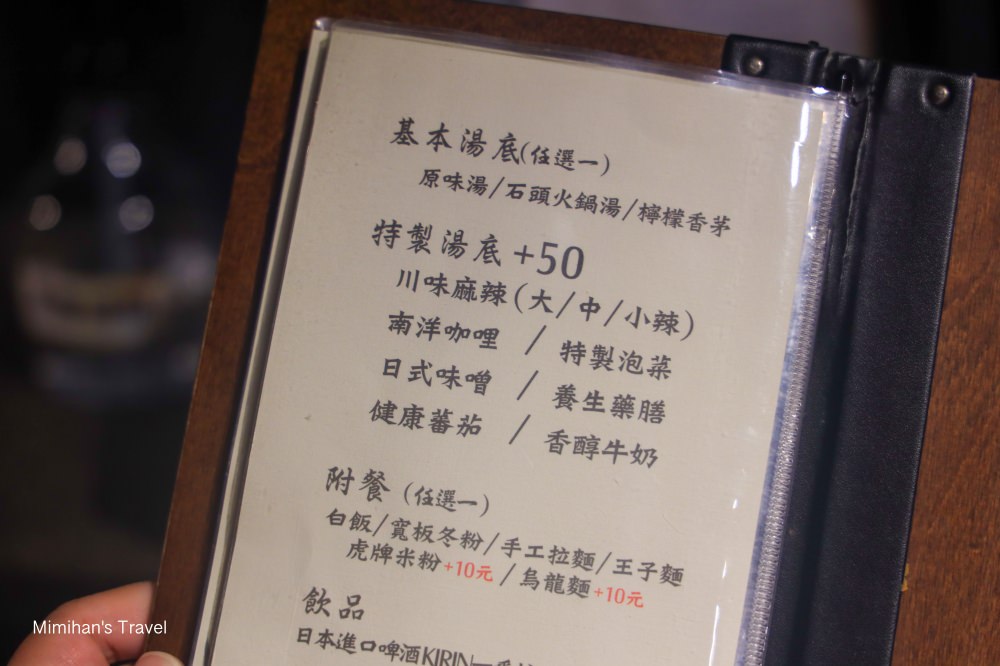 基本湯底(任選一)
原味湯/石頭火鍋湯/檸檬香茅
特製湯底+50
川味麻辣(大/中/小辣)
南洋咖哩 / 特製泡菜
日式味噌 / 養生藥膳
健康蕃茄 / 香醇牛奶
附餐(任選一)
白飯/寬板冬粉/手工拉麵/王子麵
虎牌米粉+10元/烏龍麵+10元
飲品
日本進口啤酒KIRIN一番
Mimihan's Travel